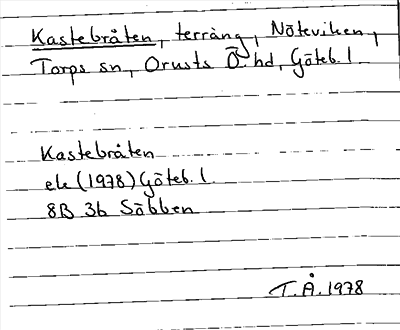 Kastebråten, terräng, Nöteviken,
Torps sn, Orusts Ö. hd, Göteb. l.
Kastebråten
ek (1978) Göteb. l.
8B 3b Säbben
T. Å. 1978